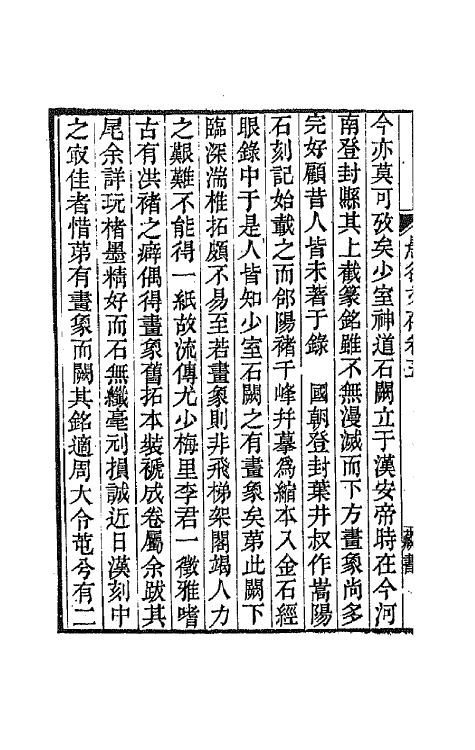 今亦莫可攷矣少室神道石闕立于漢安帝時在今河
南登封縣其上截篆銘雖不無漫滅而下方畫象尚多
完好顧昔人皆未著于錄　國朝登封葉井叔作嵩陽
石刻記始載之而郃陽褚千峰幷摹為縮本入金石經
眼錄中于是人皆知少室石闕之有畫象矣第此闕下
臨深湍椎拓頗不易至若畫象則非飛梯架閣竭人力
之艱難不能得一紙故流傳尤少梅里李君一徵雅嗜
古有洪褚之癖偶得畫象舊拓本裝褫成卷屬余跋其
尾余詳玩楮墨精好而石無纖毫刓損誠近日漢刻中
之冣佳者惜第有畫象而闕其銘適周大令菴兮有二